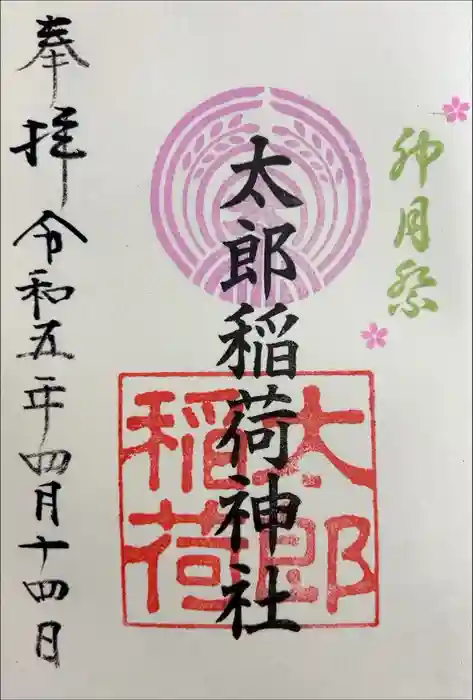 卯月祭
太郎稲荷神社
太郎
稲荷
奉拝 令和五年四月十四日